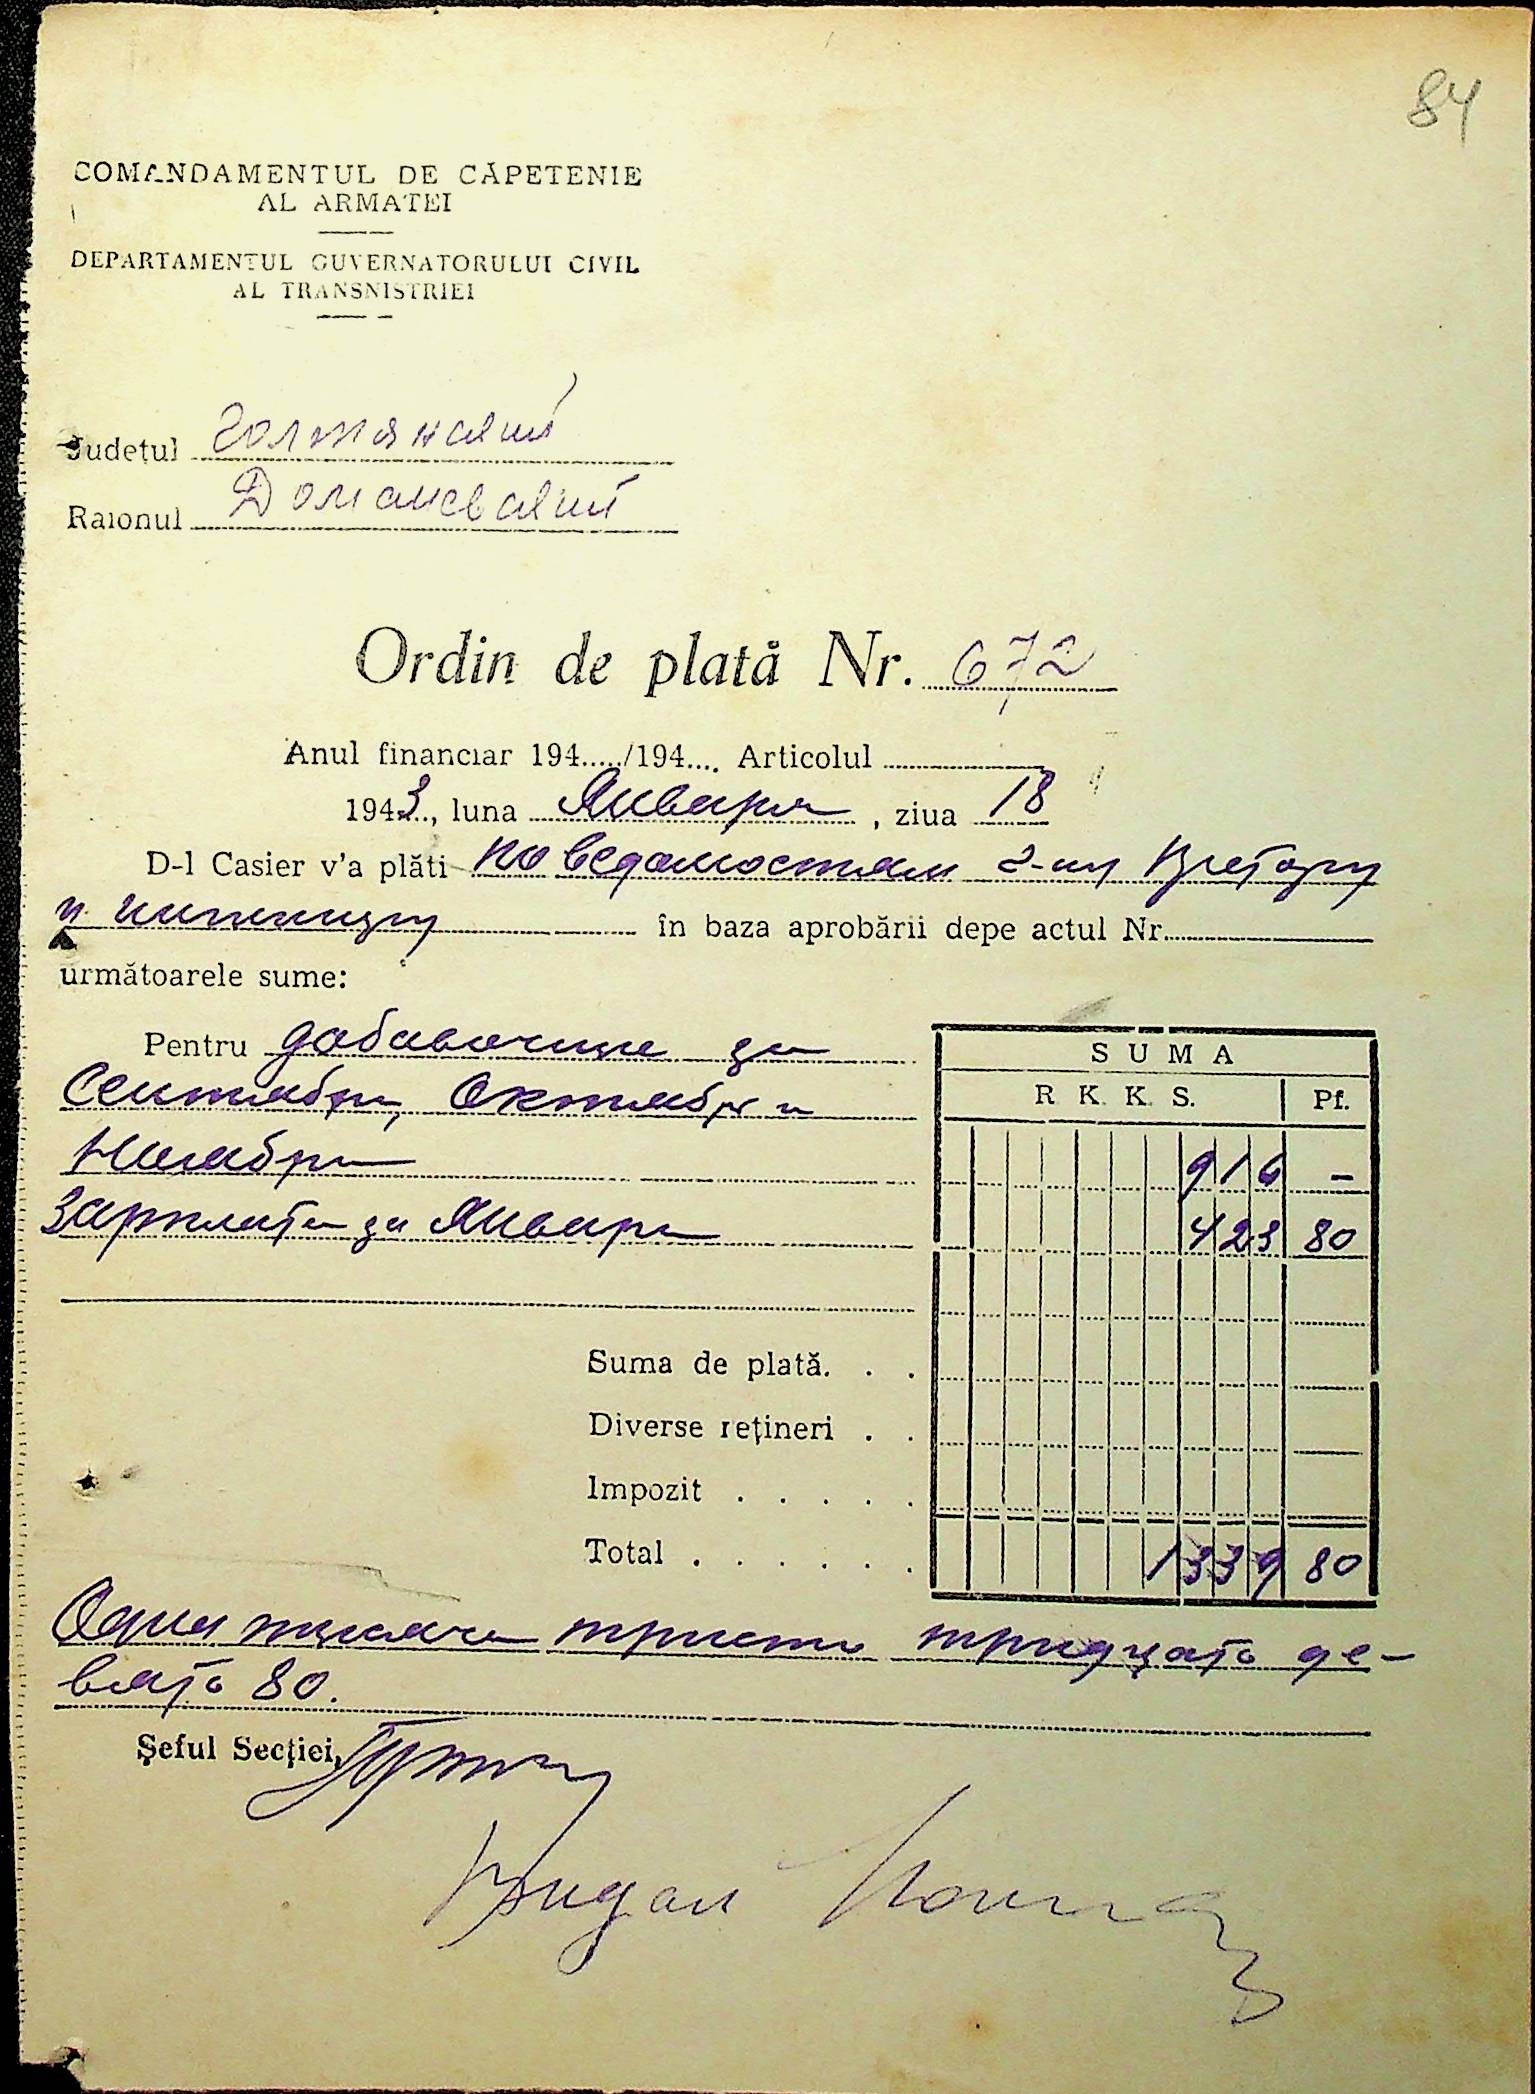 84
COMANDAMENTUL DE CĂPETENIE
AL ARMATEI
DEPARTAMENTUL GUVERNATORULUI CIVIL
AL TRANSNISTRIEI
Județul Голтянский
Raionul Доманевский
Ordin de plată Nr. 672
Anul financiar 194...../194.... Articolul
1943.., luna Января, ziua 18
D-l Casier v'a plăti по ведомостям г-ну Претору
и în baza aprobării depe actul Nr.
următoarele sume:
Pentru добавочные за
Сентябрь, Октябрь и
Ноябрь
Зарплата за Январь
SUMA
R K. K. S. Pf.
916 –
423 80
Suma de plată. . .
Diverse rețineri . .
Impozit . . . . .
Total . . . . . . 1339 80
Одна тысяча триста тридцать де-
вять 80.
Șeful Secției,